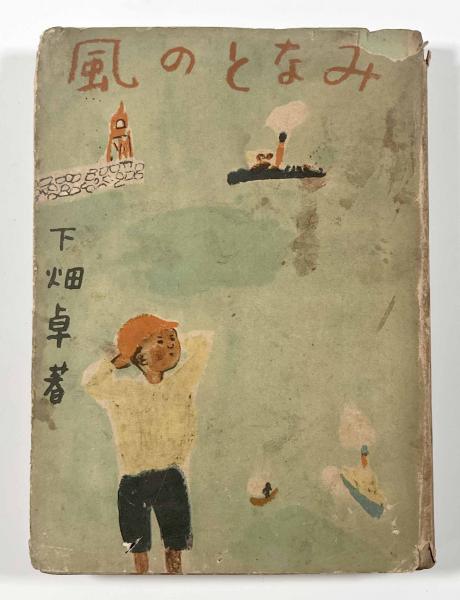 みなとの風
下畑卓著